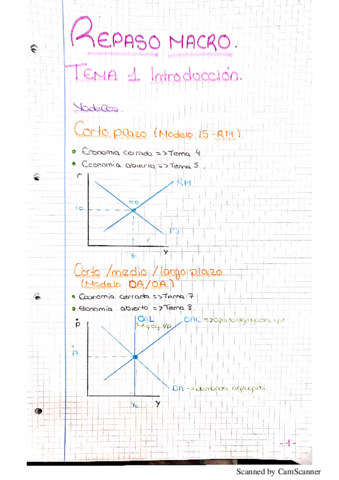 REPASO MACRO.
TEMA 1 Introducción.
Modelos
Corto plazo (Modelo IS-RM)
Economía cerrada => Tema 4
Economía abierta => Tema 5.
r
RM
IS
Y
Corto/medio/largo plazo
(Modelo DA/OA)
Economía cerrada => Tema 7
Economía abierta => Tema 8
OAL
OAC =>
DA => demanda agregada
Y
-1-
Scanned by CamScanner